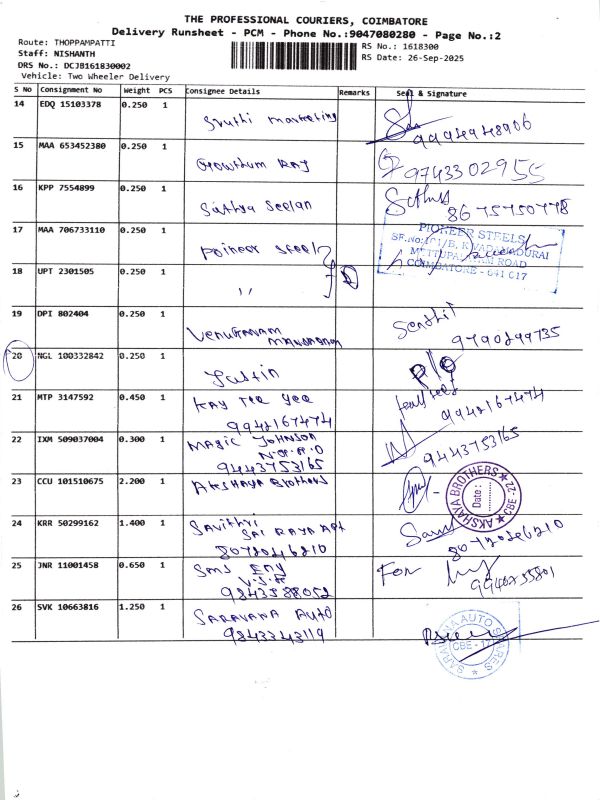 THE PROFESSIONAL COURIERS, COIMBATORE
Delivery Runsheet - PCM - Phone No.:9047080280 - Page No.:2
Route: THOPPAMPATTI
Staff: NISHANTH
DRS No.: DCJB161830002
Vehicle: Two Wheeler Delivery
RS No.: 1618300
RS Date: 26-Sep-2025
S No Consignment No Weight PCS Consignee Details Remarks Seal & Signature
14 EDQ 15103378 0.250 1 Sruthi marketing 9994948906
15 MAA 653452380 0.250 1 Gowthum Raj 9743302955
16 KPP 7554899 0.250 1 Sathya Seelan 8675750778
17 MAA 706733110 0.250 1 Poineer Steel
PIONEER STEELS
METTUPALAYAM ROAD
COIMBATORE - 641 017
18 UPT 2301505 0.250 1 "
19 DPI 802404 0.250 1 Venuganam Senthil
9790299735
20 NGL 100332842 0.250 1 Justin
21 MTP 3147592 0.450 1 Kay Tee Yee
9942167474 9942167474
22 IXM 509037004 0.300 1 Magic Johnson
N.G.G.O
9443753165 9443753165
23 CCU 101510675 2.200 1 Akshaya Brothers
AKSHAYA BROTHERS
Date:
CBE-22
24 KRR 50299162 1.400 1 Savithri
Sai Raya Apt
8072046210
25 JNR 11001458 0.650 1 Sms Eng For
V.S.R
26 SVK 10663816 1.250 1 Saravana Auto
9843343119
SARAVANA AUTO SPARES
CBE - 17